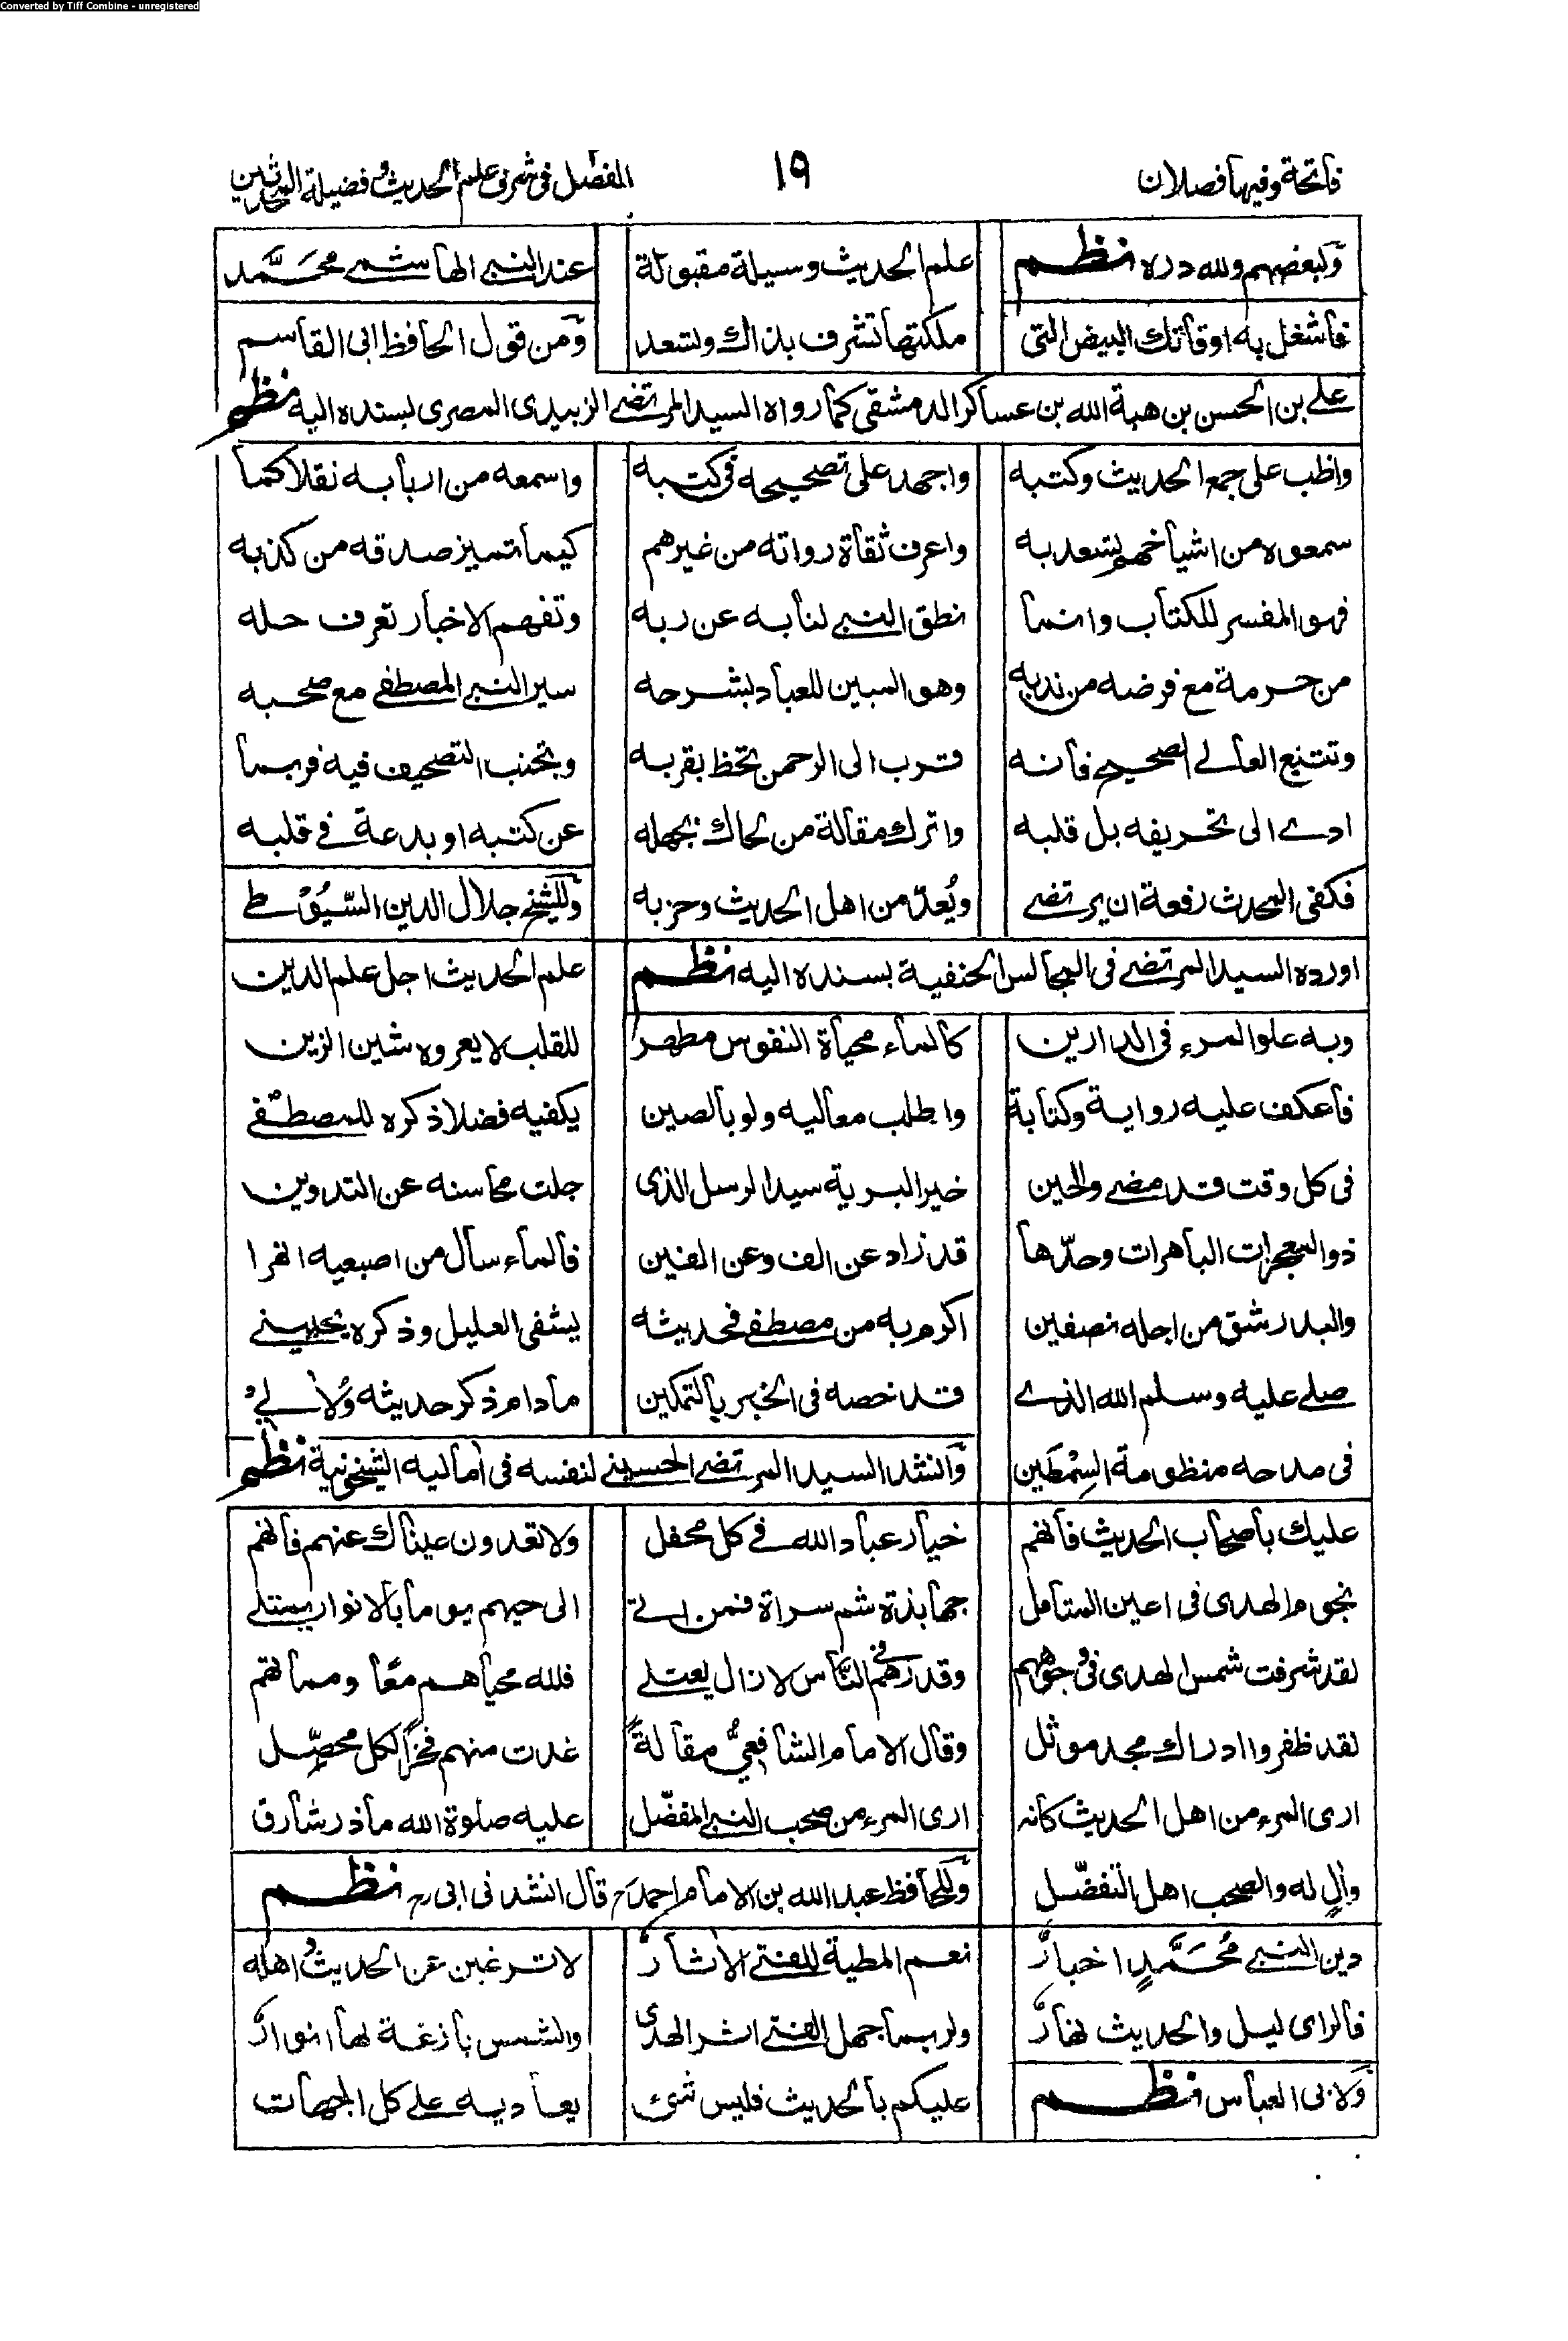 Converted by Tiff Combine - unregistered
فاتحة وفيها فصلان ١٩ الفصل في شرف علم الحديث وفضيلة المحدثين
ولبعضهم ولله دره نظم علم الحديث وسيلة مقبولة عند النبي الهاشمي محمَّد
فاشغل به اوقاتك البيض التي ملكتها تشرف بذاك وتسعد ومن قول الحافظ ابي القاسم
علي بن الحسن بن هبة الله بن عساكر الدمشقي كما رواه السيد المرتضى الزبيدي المصري بسنده اليه نظم
واظب على جمع الحديث وكتبه واجهد على تصحيحه في كتبه واسمعه من اربابه نقلا كما
سمعوه من اشياخهم تسعد به واعرف ثقاة رواته من غيرهم كيما تميز صدقه من كذبه
فهو المفسر للكتاب وانما نطق النبي لنا به عن ربه وتفهم الاخبار تعرف حله
من حرمة مع فرضه من ندبه وهو المبين للعباد بشرحه سير النبي المصطفى مع صحبه
وتتبع العالي الصحيح فانه قرب الى الرحمن تحظ بقربه وتجنب التصحيف فيه فربما
ادى الى تحريفه بل قلبه واترك مقالة من لحاك بجهله عن كتبه او بدعة في قلبه
فكفى المحدث رفعة ان يرتضى ويُعدّ من اهل الحديث وحزبه وللشيخ جلال الدين السّيُوْطي
اورده السيد المرتضى في المجالس الحنفية بسنده اليه نظم علم الحديث اجل علم الدين
وبه علو المرء في الدارين كالماء محياة النفوس مطهر للقلب لا يعروه شين الزين
فاعكف عليه رواية وكتابة واطلب معاليه ولو بالصين يكفيه فضلا ذكره للمصطفى
في كل وقت قد مضى والحين خير البرية سيد الرسل الذي جلت محاسنه عن التدوين
ذو المعجزات الباهرات وحدّها قد زاد عن الف وعن الفين فالماء سال من اصبعيه انهرا
والبدر شق من اجله نصفين اكرم به من مصطفى فحديثه يشفي العليل وذكره يحييني
صلى عليه وسلم الله الذي قد خصه في الخبر بالتمكين ما دام ذكر حديثه ولأٰلي
في مدحه منظومة السِمْطَين وانشد السيد المرتضى الحسيني لنفسه في أماليه الشيخونية نظم
عليك باصحاب الحديث فانهم خيار عباد الله في كل محفل ولا تعدون عيناك عنهم فانهم
نجوم الهدى في اعين المتامل جهابذة شم سراة فمن اتى الى حيهم يوما بالانوار يمتلي
لقد شرقت شمس الهدى في وجوههم وقدرهم في النَّاس لا زال يعتلي فلله محياهم معًا ومماتهم
لقد ظفروا ادراك مجد موثل وقال الامام الشافعيُّ مقالةً غدت منهم فخرًا لكل محصِّل
ارى المرء من اهل الحديث كانه ارى المرء من صحب النبي المفضّل عليه صلوة الله ما ذر شارق
واٰلٍ له والصحب اهل التفضّل وللحافظ عبد الله بن الامام احمد رح قال انشدني ابي رح نظم
دين النبي مُحَمَّدٍ اخبارُ نعم المطية للفتى الأثارُ لا ترغبن عن الحديث واهله
فالراى ليل والحديث نهارُ ولربما جهل الفتى اثر الهدى والشمس بازغة لها انوارُ
ولابي العباس نظم عليكم بالحديث فليس شئ يعاديه على كل الجهات